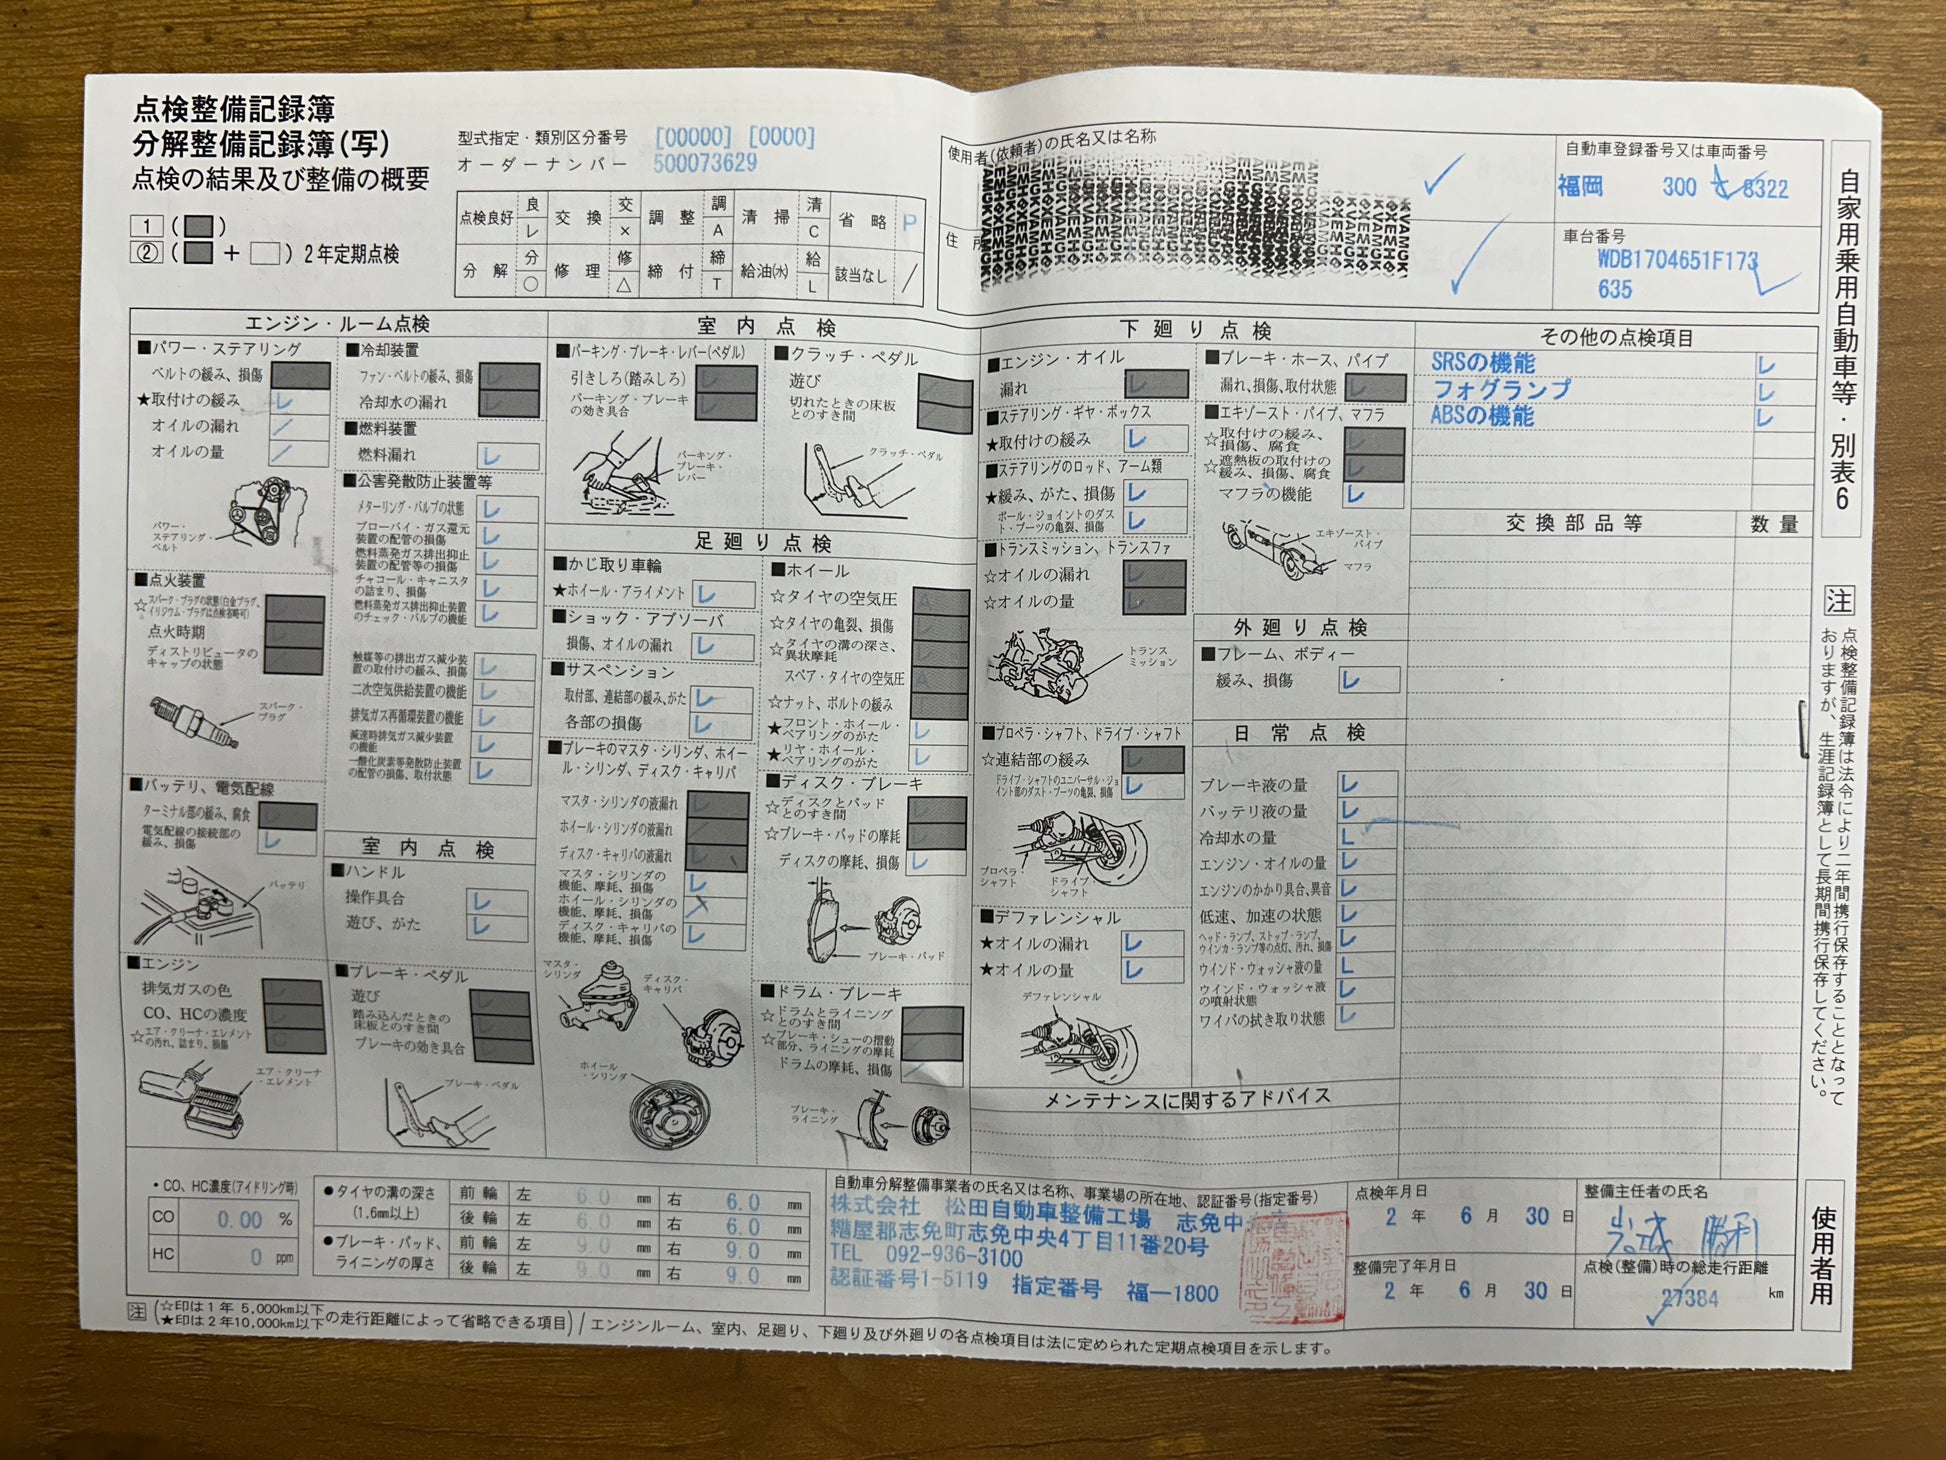 点検整備記録簿
分解整備記録簿(写)
点検の結果及び整備の概要
1 ( )
② ( + ) 2年定期点検
型式指定・類別区分番号 [00000] [0000]
オーダーナンバー 500073629
点検良好 良 レ 交換 交 × 調整 調 A 清掃 清 C 省略 P
分解 分 ○ 修理 修 △ 締付 締 T 給油(水) 給 L 該当なし /
使用者(依頼者)の氏名又は名称
住所
自動車登録番号又は車両番号
福岡 300 8322
車台番号
WDB1704651F173
635
自家用乗用自動車等・別表6
エンジン・ルーム点検
■パワー・ステアリング
ベルトの緩み、損傷
★取付けの緩み レ
オイルの漏れ /
オイルの量 /
パワー・ステアリング・ベルト
■点火装置
☆スパーク・プラグの状態(白金プラグ、イリジウム・プラグは点検省略可)
点火時期
ディストリビュータのキャップの状態
スパーク・プラグ
■バッテリ、電気配線
ターミナル部の緩み、腐食
電気配線の接続部の緩み、損傷 レ
バッテリ
■エンジン
排気ガスの色
CO、HCの濃度
☆エア・クリーナ・エレメントの汚れ、詰まり、損傷
エア・クリーナ・エレメント
■冷却装置
ファン・ベルトの緩み、損傷 レ
冷却水の漏れ レ
■燃料装置
燃料漏れ レ
■公害発散防止装置等
メターリング・バルブの状態 レ
ブローバイ・ガス還元装置の配管の損傷 レ
燃料蒸発ガス排出抑止装置の配管等の損傷 レ
チャコール・キャニスタの詰まり、損傷 レ
燃料蒸発ガス排出抑止装置のチェック・バルブの機能 レ
触媒等の排出ガス減少装置の取付けの緩み、損傷 レ
二次空気供給装置の機能 レ
排気ガス再循環装置の機能 レ
減速時排気ガス減少装置の機能 レ
一酸化炭素等発散防止装置の配管の損傷、取付状態 レ
室内点検
■ハンドル
操作具合 レ
遊び、がた レ
■ブレーキ・ペダル
遊び
踏み込んだときの床板とのすき間
ブレーキの効き具合
ブレーキ・ペダル
室内点検
■パーキング・ブレーキ・レバー(ペダル)
引きしろ(踏みしろ) レ
パーキング・ブレーキの効き具合 レ
パーキング・ブレーキ・レバー
■クラッチ・ペダル
遊び
切れたときの床板とのすき間
クラッチ・ペダル
足廻り点検
■かじ取り車輪
★ホイール・アライメント レ
■ショック・アブソーバ
損傷、オイルの漏れ レ
■サスペンション
取付部、連結部の緩み、がた レ
各部の損傷 レ
■ブレーキのマスタ・シリンダ、ホイール・シリンダ、ディスク・キャリパ
マスタ・シリンダの液漏れ レ
ホイール・シリンダの液漏れ /
ディスク・キャリパの液漏れ レ
マスタ・シリンダの機能、摩耗、損傷 レ
ホイール・シリンダの機能、摩耗、損傷
ディスク・キャリパの機能、摩耗、損傷 レ
マスタ・シリンダ
ディスク・キャリパ
ホイール・シリンダ
■ホイール
☆タイヤの空気圧 A
☆タイヤの亀裂、損傷
☆タイヤの溝の深さ、異状摩耗
スペア・タイヤの空気圧 A
☆ナット、ボルトの緩み
★フロント・ホイール・ベアリングのがた レ
★リヤ・ホイール・ベアリングのがた レ
■ディスク・ブレーキ
☆ディスクとパッドとのすき間
☆ブレーキ・パッドの摩耗
ディスクの摩耗、損傷 レ
ブレーキ・パッド
■ドラム・ブレーキ
☆ドラムとライニングとのすき間
☆ブレーキ・シューの摺動部分、ライニングの摩耗
ドラムの摩耗、損傷 /
ブレーキ・ライニング
下廻り点検
■エンジン・オイル
漏れ レ
■ステアリング・ギヤ・ボックス
★取付けの緩み レ
■ステアリングのロッド、アーム類
★緩み、がた、損傷 レ
ボール・ジョイントのダスト・ブーツの亀裂、損傷 レ
■トランスミッション、トランスファ
☆オイルの漏れ レ
☆オイルの量 レ
トランスミッション
■プロペラ・シャフト、ドライブ・シャフト
☆連結部の緩み レ
ドライブ・シャフトのユニバーサル・ジョイント部のダスト・ブーツの亀裂、損傷 レ
プロペラ・シャフト
ドライブ・シャフト
■デファレンシャル
★オイルの漏れ レ
★オイルの量 レ
デファレンシャル
■ブレーキ・ホース、パイプ
漏れ、損傷、取付状態 レ
■エキゾースト・パイプ、マフラ
☆取付けの緩み、損傷、腐食 レ
☆遮熱板の取付けの緩み、損傷、腐食 レ
マフラの機能 レ
エキゾースト・パイプ
マフラ
外廻り点検
■フレーム、ボディー
緩み、損傷 レ
日常点検
ブレーキ液の量 レ
バッテリ液の量 レ
冷却水の量 L
エンジン・オイルの量 レ
エンジンのかかり具合、異音 レ
低速、加速の状態 レ
ヘッド・ランプ、ストップ・ランプ、ウインカ・ランプ等の点灯、汚れ、損傷 レ
ウインド・ウォッシャ液の量 L
ウインド・ウォッシャ液の噴射状態 レ
ワイパの拭き取り状態 レ
メンテナンスに関するアドバイス
その他の点検項目
SRSの機能 レ
フォグランプ レ
ABSの機能 レ
交換部品等 数量
注 点検整備記録簿は法令により二年間携行保存することとなって
おりますが、生涯記録簿として長期間携行保存してください。
使用者用
・CO、HC濃度(アイドリング時)
CO 0.00 %
HC 0 ppm
●タイヤの溝の深さ(1.6mm以上)
前輪 左 6.0 mm 右 6.0 mm
後輪 左 6.0 mm 右 6.0 mm
●ブレーキ・パッド、ライニングの厚さ
前輪 左 9.0 mm 右 9.0 mm
後輪 左 9.0 mm 右 9.0 mm
自動車分解整備事業者の氏名又は名称、事業場の所在地、認証番号(指定番号)
株式会社 松田自動車整備工場 志免中央
糟屋郡志免町志免中央4丁目11番20号
TEL 092-936-3100
認証番号1-5119 指定番号 福―1800
点検年月日
2 年 6 月 30 日
整備完了年月日
2 年 6 月 30 日
整備主任者の氏名
勝利
点検(整備)時の総走行距離
27384 km
注 (☆印は1年 5,000km以下
★印は2年10,000km以下の走行距離によって省略できる項目) / エンジンルーム、室内、足廻り、下廻り及び外廻りの各点検項目は法に定められた定期点検項目を示します。